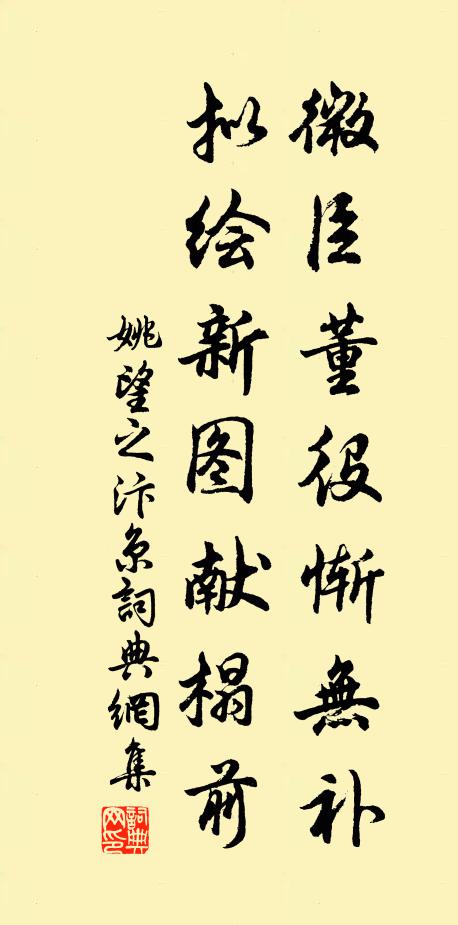 微臣董役惭無补
拟绘新图献榻前
姚望之汴京詞典網集
詞典网印